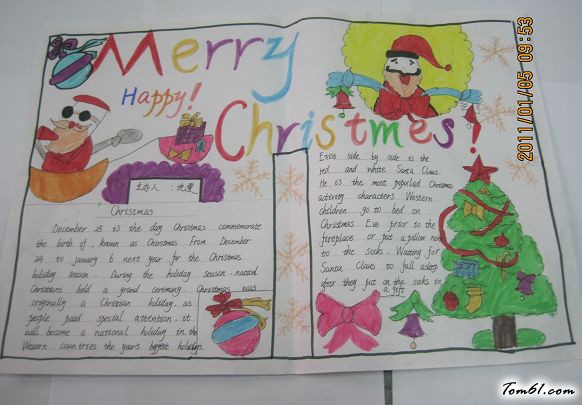 Merry
Happy!
Christmes!
2011/01/05 09:53
主办人：
Christmas
December 25 is the day Christmas commemorate
the birth of, known as Christmas From December
24 to January 6 next year for the Christmas
holiday season. During the holiday season, national
Christians hold a grand ceremony. Christmas was
originally a Christian holiday, as
people paid special attention, it
will become a national holiday in the
Western countries the year's biggest holidays.
Exise side by side is the
red and white Santa Claus.
He is the most populad Christmas
activity characters Western
children go to bed on
Christmas Eve prior to the
fireplace or put a pillow next
to the socks. Waiting for
Santa Claus to fall asleep
after they put on the socks in
a gift
Tom61.com